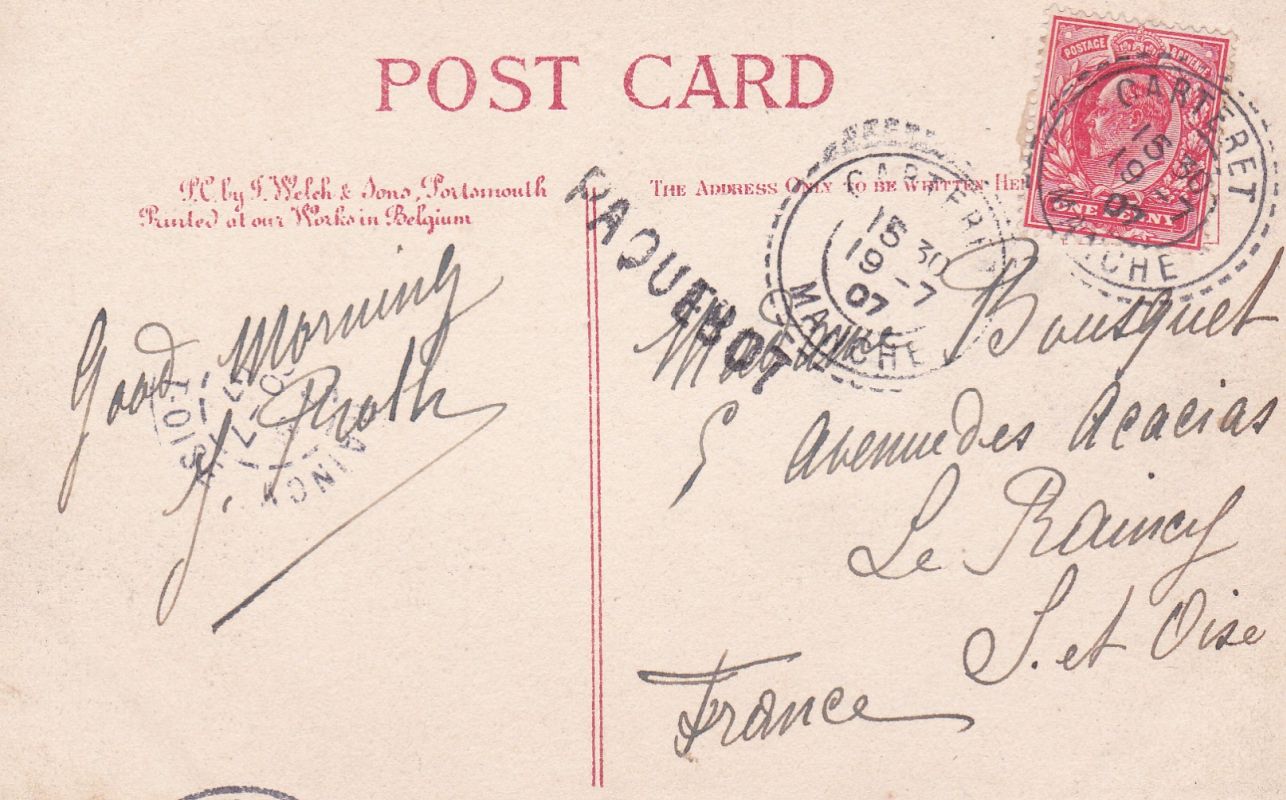 POST CARD
P.C. by J. Welch & Sons, Portsmouth
Printed at our Works in Belgium
THE ADDRESS ONLY TO BE WRITTEN HE
POSTAGE REVENUE
ONE PENNY
CARTERET
15 30
19 - 7
07
MANCHE
CARTERET
15 30
19 - 7
07
MANCHE
PAQUEBOT
Good Morning
J.
Bousquet
5 Avenue des Acacias
Le Raincy
S. et Oise
France